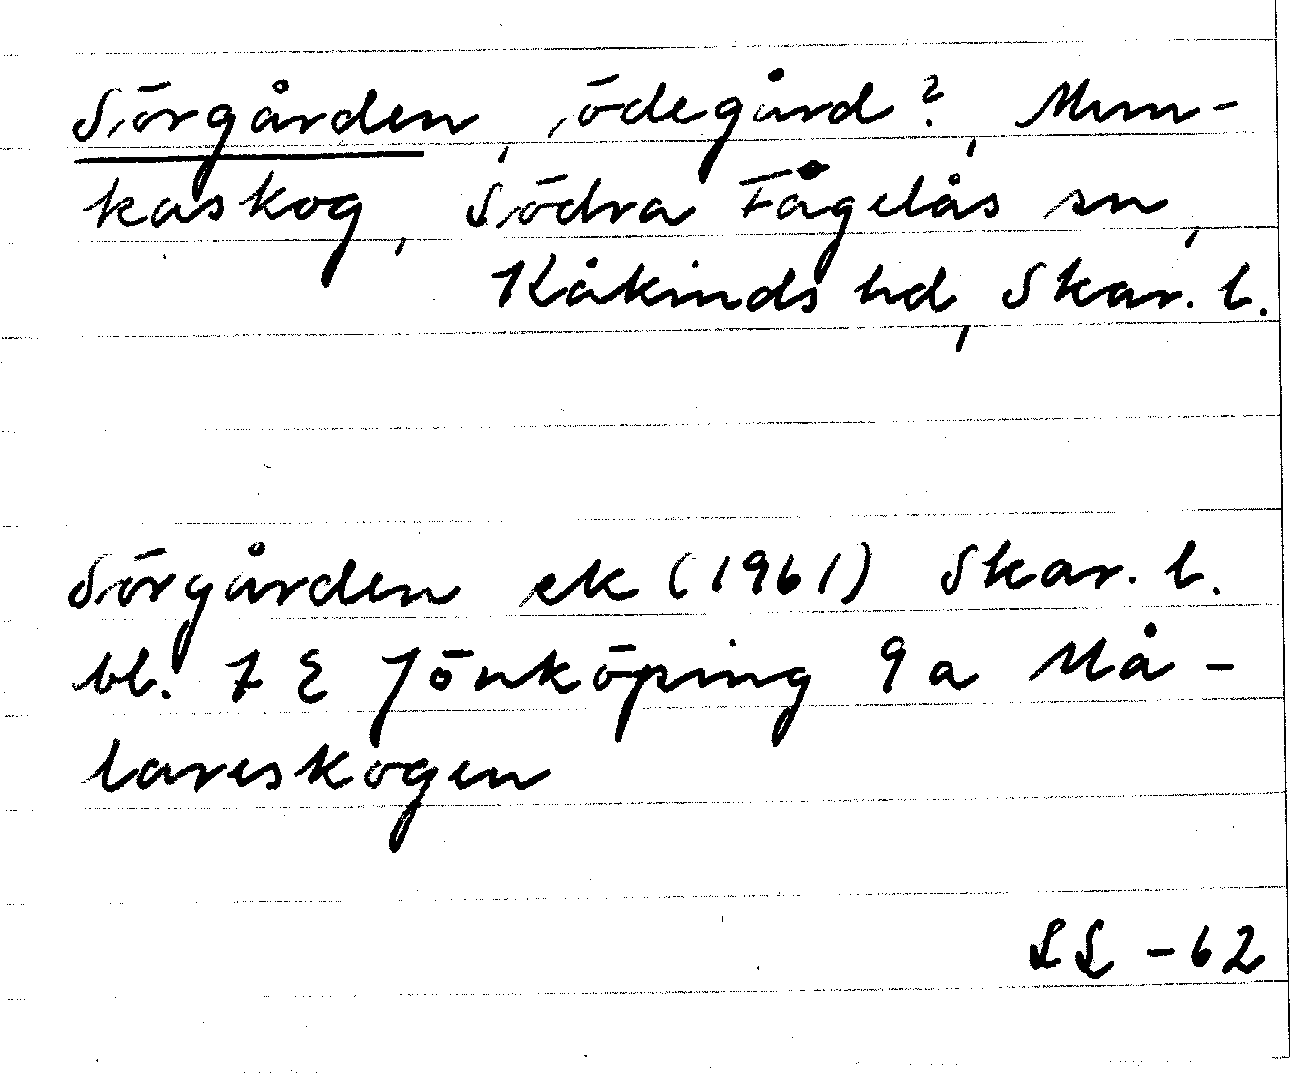 Sörgården, ödegård?, Mun-
kaskog, Södra Fågelås sn,
Kåkinds hd, Skar. l.
Sörgården ek (1961) Skar. l.
bl. 7 E Jönköping 9 a Må-
lareskogen
SL -62